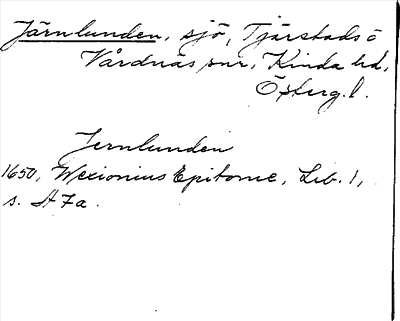 Järnlunden, sjö, Tjärstads o
Vårdnäs snr, Kinda hd,
Österg. l.
Jernlunden
1650, Wexionius Epitome, Lib. 1,
s. A 7 a.